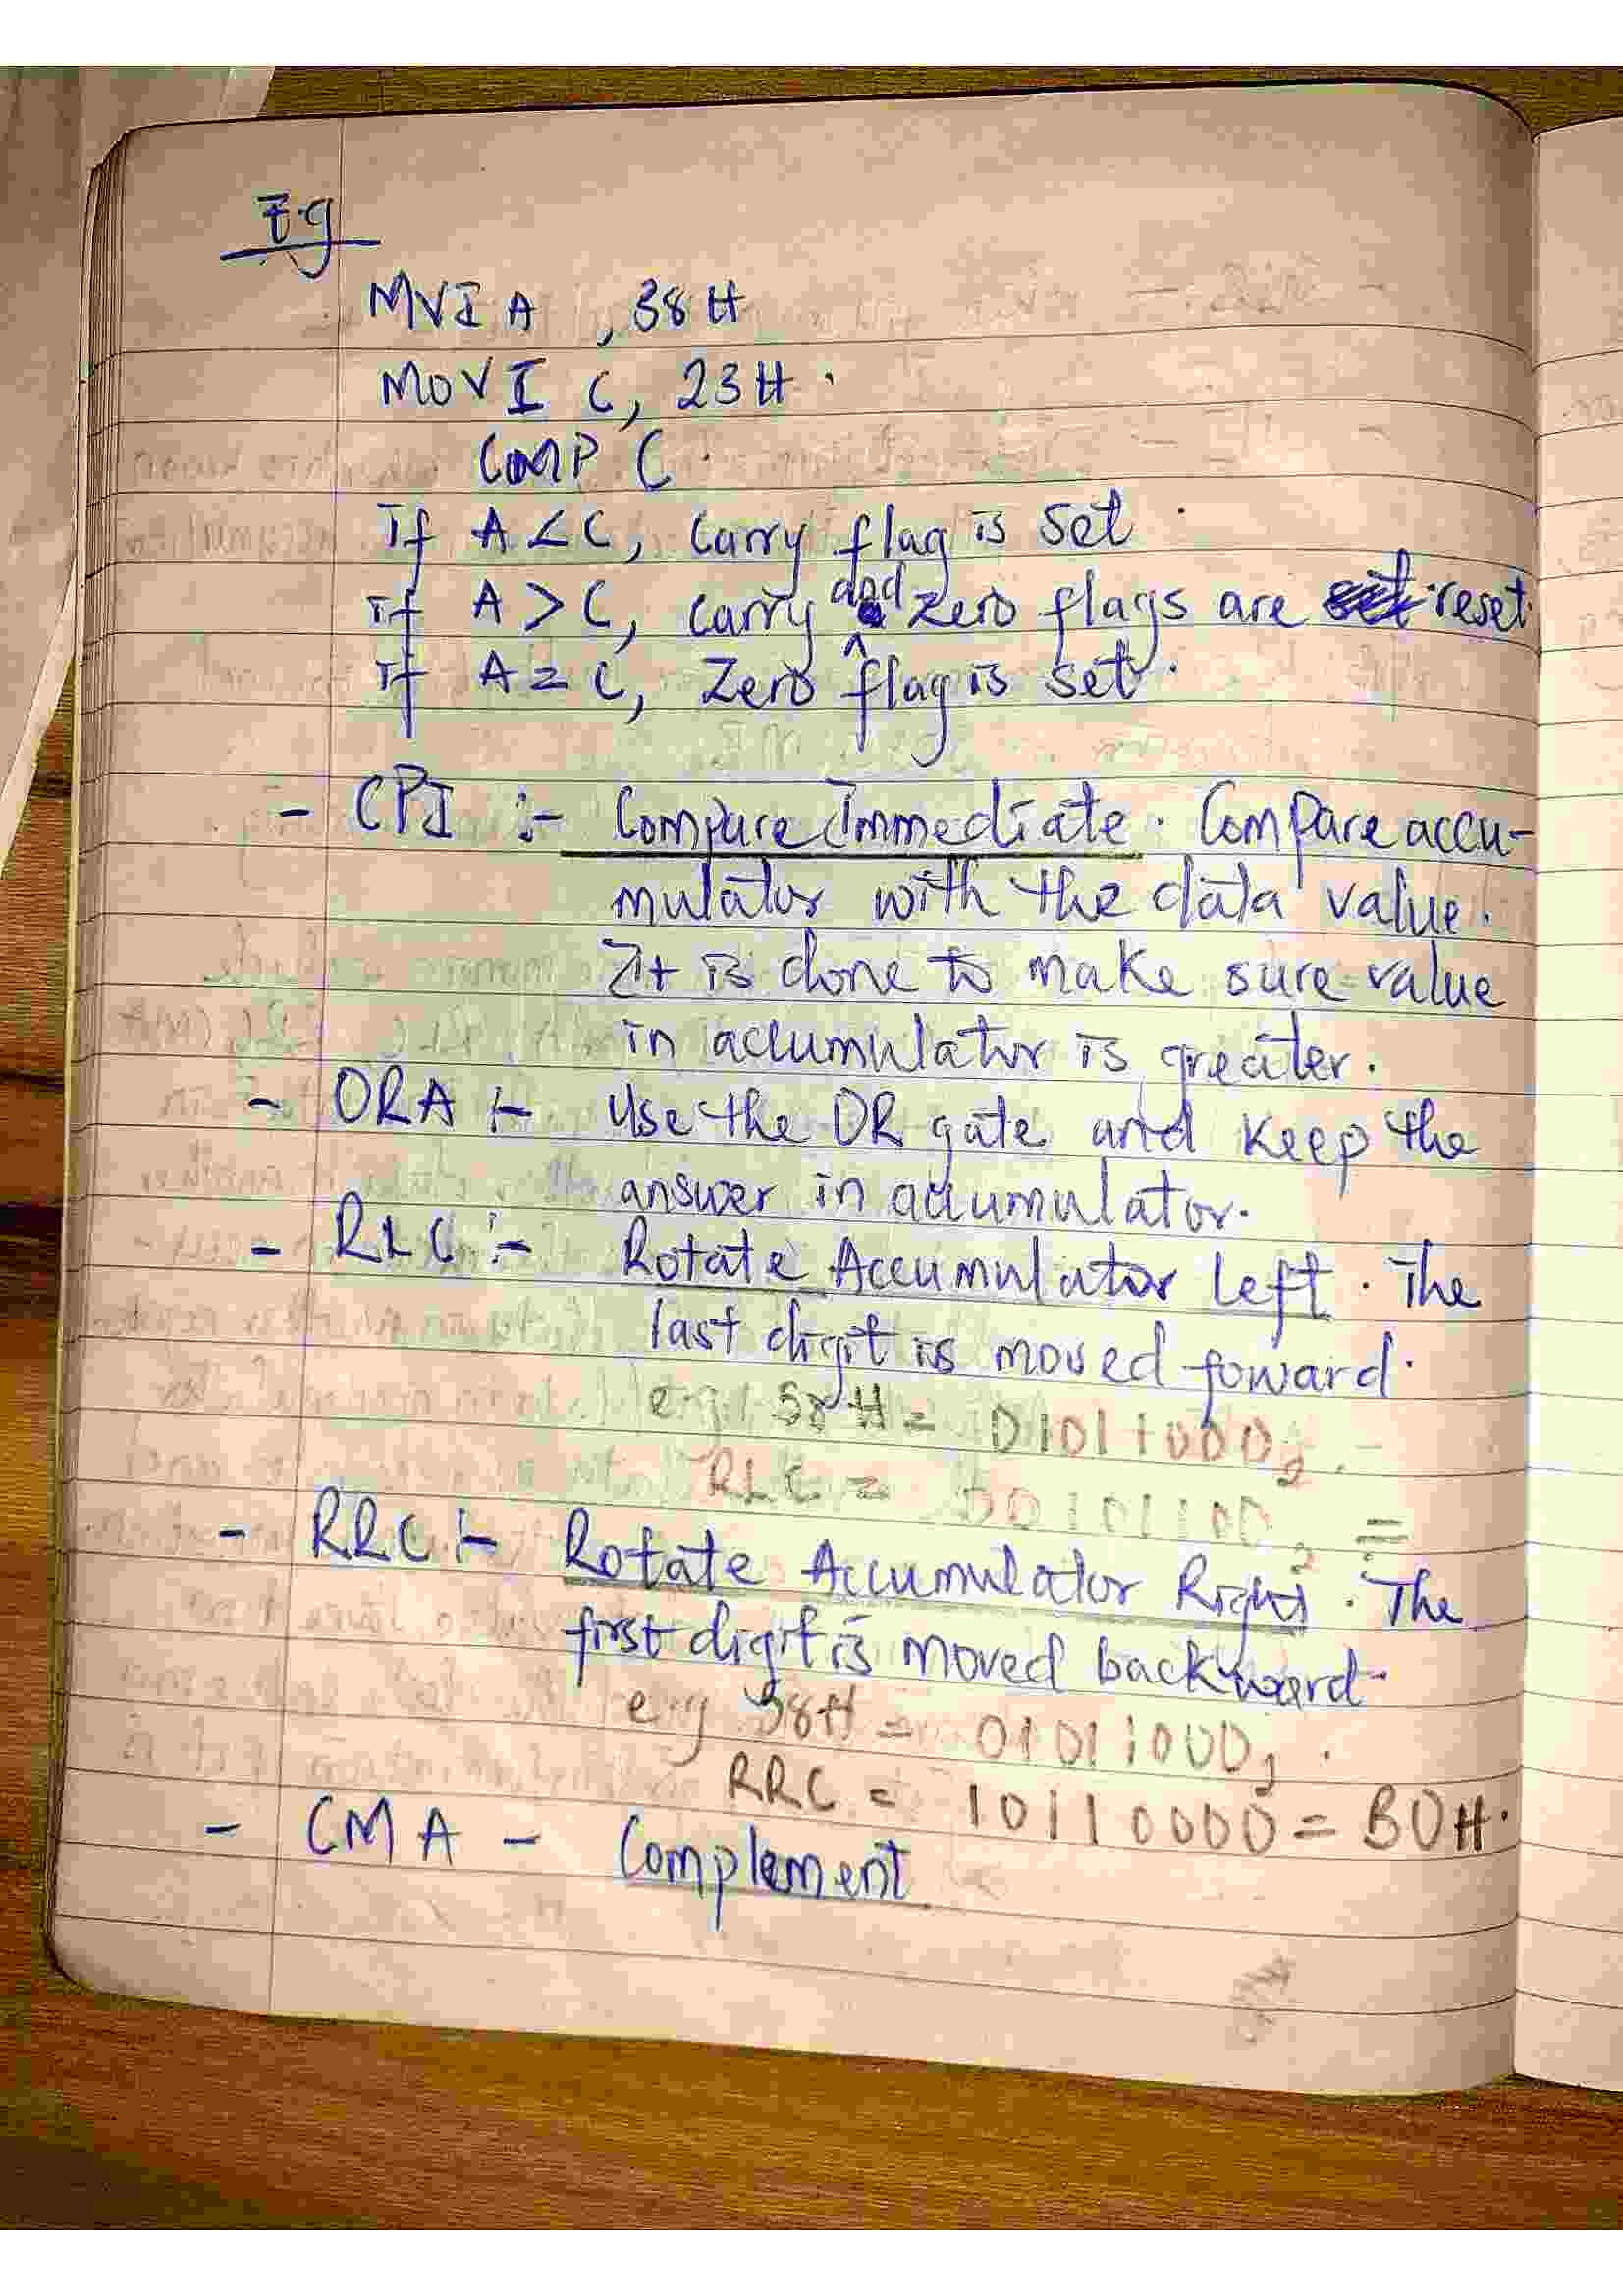 E.g
MVI A , 38H
MOVI C, 23H.
COMP C.
If A < C, Carry flag is set.
If A > C, Carry and Zero flags are reset
If A = C, Zero flag is set.
- CPI :- Compare Immediate. Compare accu-
mulator with the data value.
It is done to make sure value
in accumulator is greater.
- ORA :- Use the OR gate and keep the
answer in accumulator.
- RLC :- Rotate Accumulator Left. The
last digit is moved foward.
e.g 58H = 01011000₂.
RLC = 00101100₂ =
- RRC :- Rotate Accumulator Right. The
first digit is moved backward.
e.g 58H = 01011000₂.
RRC = 10110000 = B0H.
- CMA - Complement